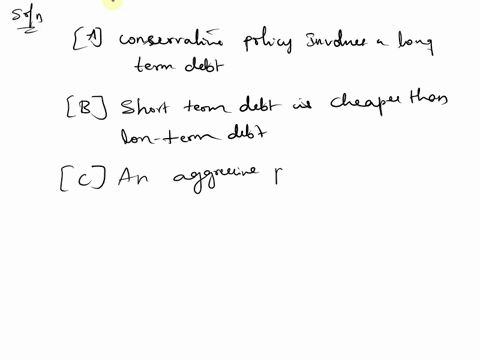 Soln
[A] conservative policy Involves a long
term debt
[B] Short term debt is cheaper than
lon-term debt
[C] An aggressive p